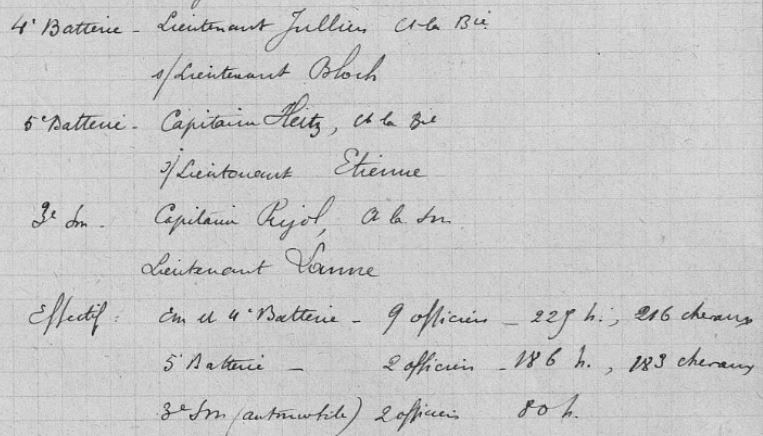 4e Batterie - Lieutenant Jullien Ct la Bie
s/Lieutenant Bloch
5e Batterie - Capitaine Heitz, Ct la Bie
s/Lieutenant Etienne
3e Son - Capitaine Pujol, Ct la Son
Lieutenant Lanne
Effectif : Em et 4e Batterie - 9 officiers - 225 h., 216 chevaux
5e Batterie - 2 officiers - 186 h., 183 chevaux
3e Son (automobile) 2 officiers 80 h.